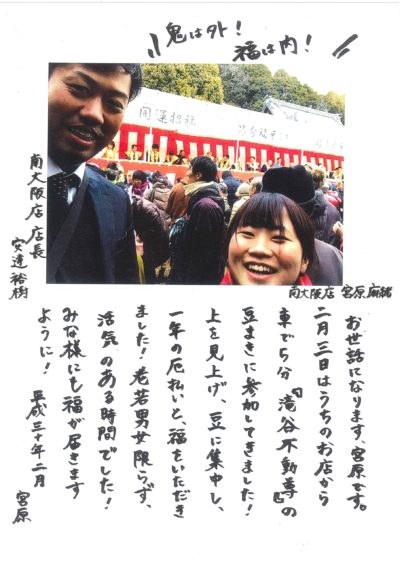 鬼は外!
福は内!
開運招福
南大阪店 店長
安達裕樹
南大阪店 宮原麻緒
お世話になります、宮原です。
二月三日はうちのお店から
車で5分『滝谷不動尊』の
豆まきに参加してきました!
上を見上げ、豆に集中し、
一年の厄払いと、福をいただき
ました!老若男女限らず、
活気のある時間でした!
みな様にも福が届きます
ように!
平成三十年二月
宮原